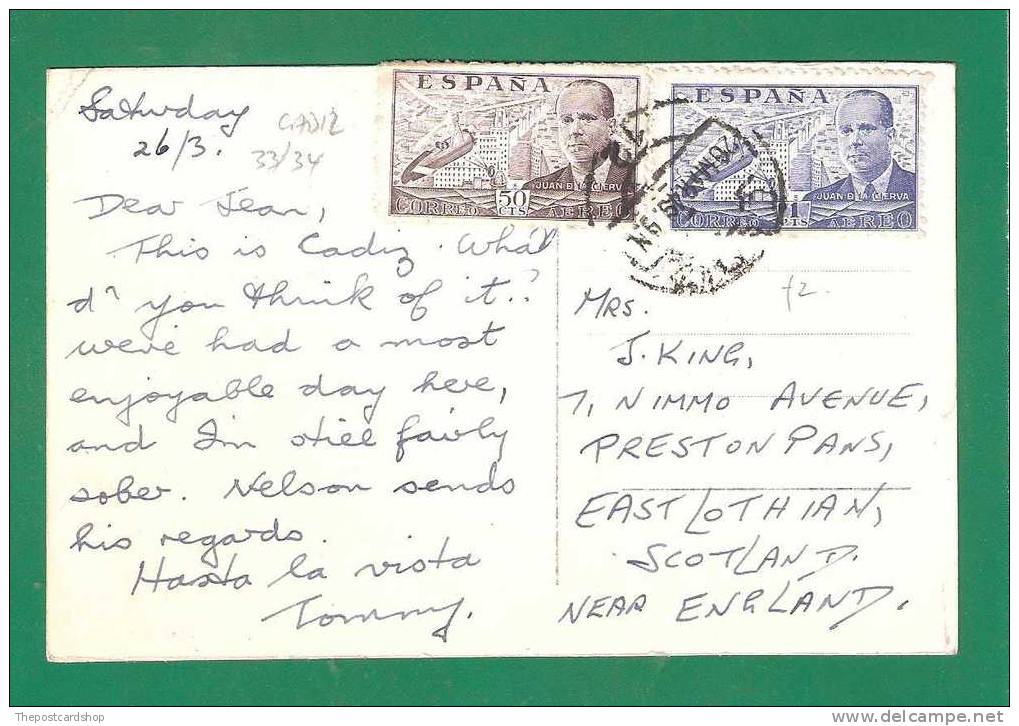 Saturday
26/3.
CADIZ
33/34
Dear Jean,
This is Cadiz. What
d' you think of it.?
we've had a most
enjoyable day here,
and I'm still fairly
sober. Nelson sends
his regards.
Hasta la vista
Tommy.
ESPAÑA
JUAN DE LA CIERVA
50
CTS
CORREO AEREO
ESPAÑA
JUAN DE LA CIERVA
1
PTS
CORREO AEREO
£2.
MRS.
J. KING,
7, NIMMO AVENUE,
PRESTON PANS,
EAST LOTHIAN,
SCOTLAND.
NEAR ENGLAND.
Thepostcardshop
delcampe.net